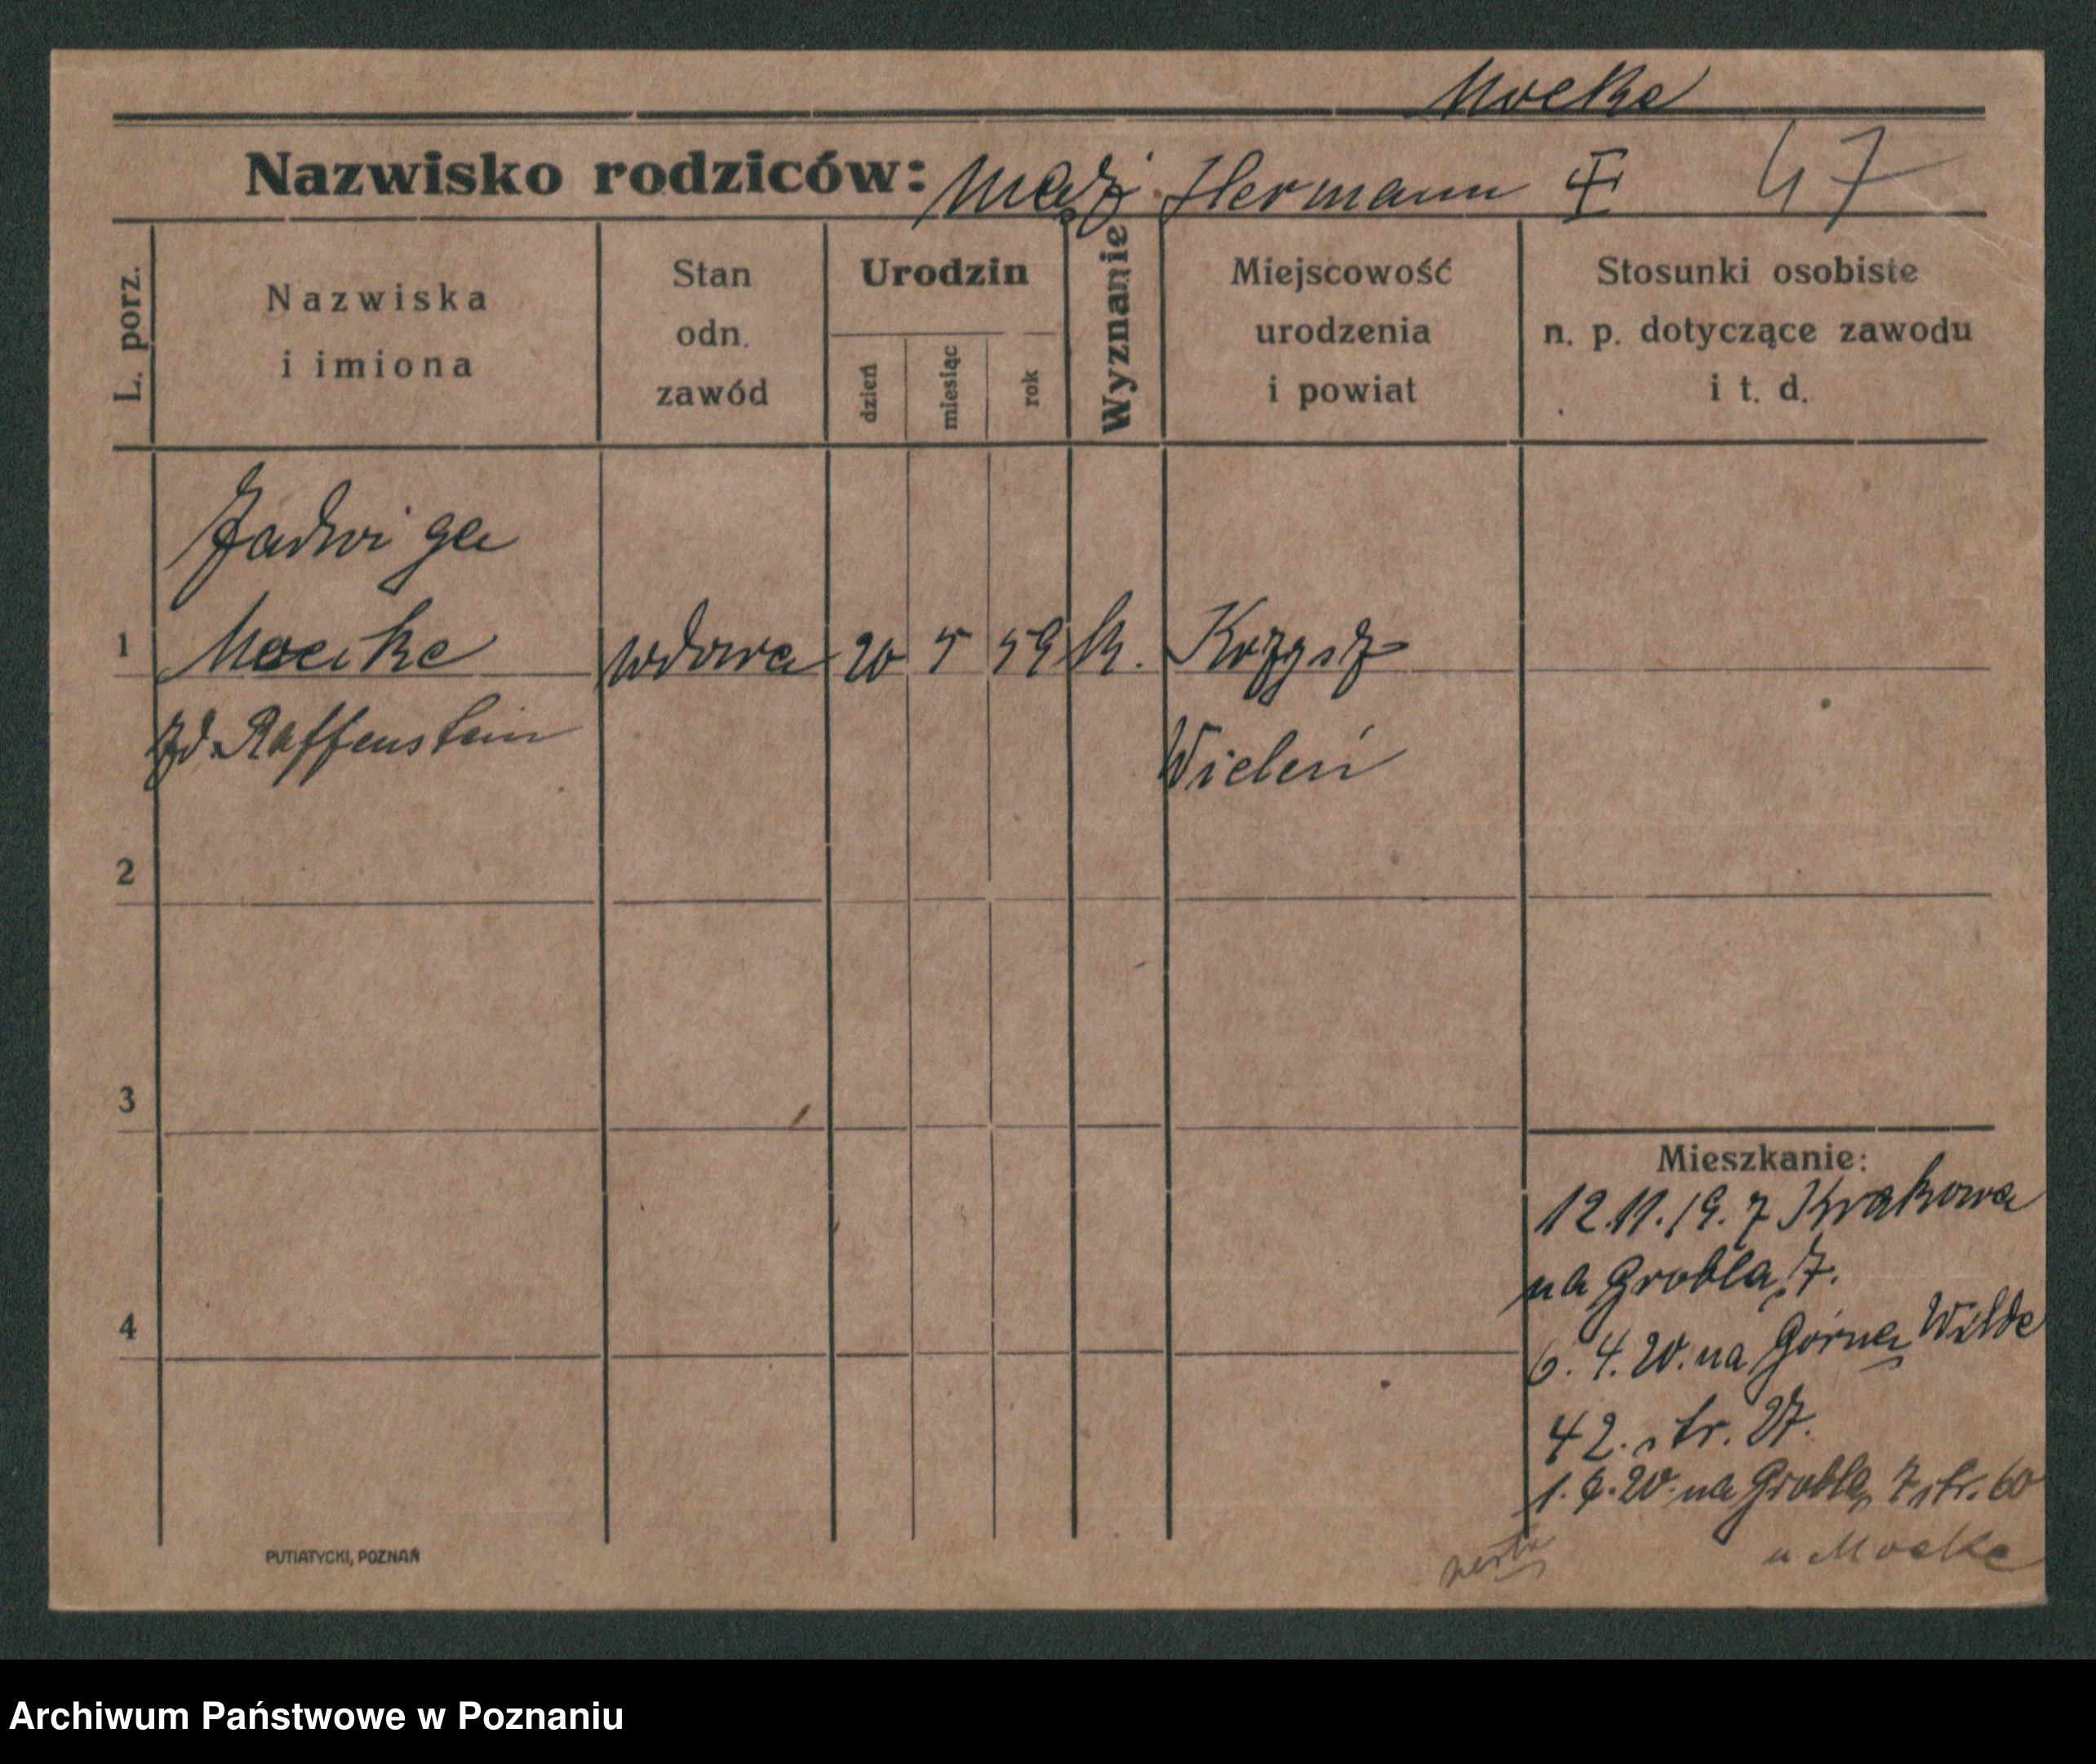 Moelke
Nazwisko rodziców: mąż Hermann 47
L. porz.
Nazwiska
i imiona
Stan
odn.
zawód
Urodzin
dzień
miesiąc
rok
Wyznanie
Miejscowość
urodzenia
i powiat
Stosunki osobiste
n. p. dotyczące zawodu
i t. d.
Jadwiga
1 Moelke wdowa 20 5 59 k.
Wieleń
2
3
4
Mieszkanie:
12.11.19. z Krakowa
na Grobla, 7.
6. 4. 20. na Górna Wilde
42. str. 27.
20. na Grobla 7 str. 60
u Moelke
PUTIATYCKI, POZNAŃ
Archiwum Państwowe w Poznaniu